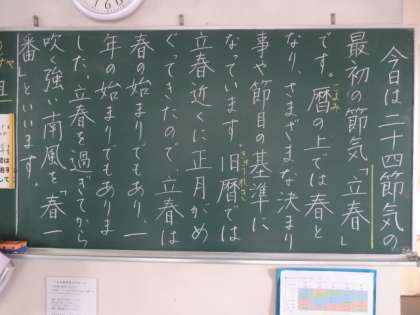 今日は二十四節気の
最初の節気「立春」
です。暦の上では春と
こよみ
なり、さまざまな決まり
事や節目の基準に
なっています。旧暦では
きゅうれき
立春近くに正月がめ
ぐってきたので、立春は
春の始まりでもあり、一
年の始まりでもありま
した。立春を過ぎてから
吹く強い南風を「春一
番」といいます。